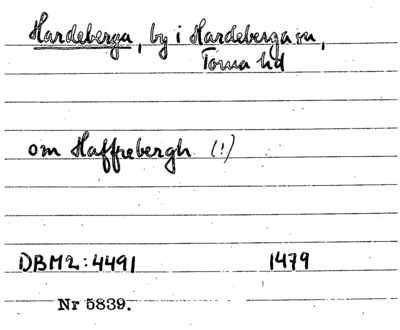 Hardeberga, by i Hardeberga sn,
Torna hd
om Haffrebergh (!)
DBM2:4491 1479
Nr 5839.